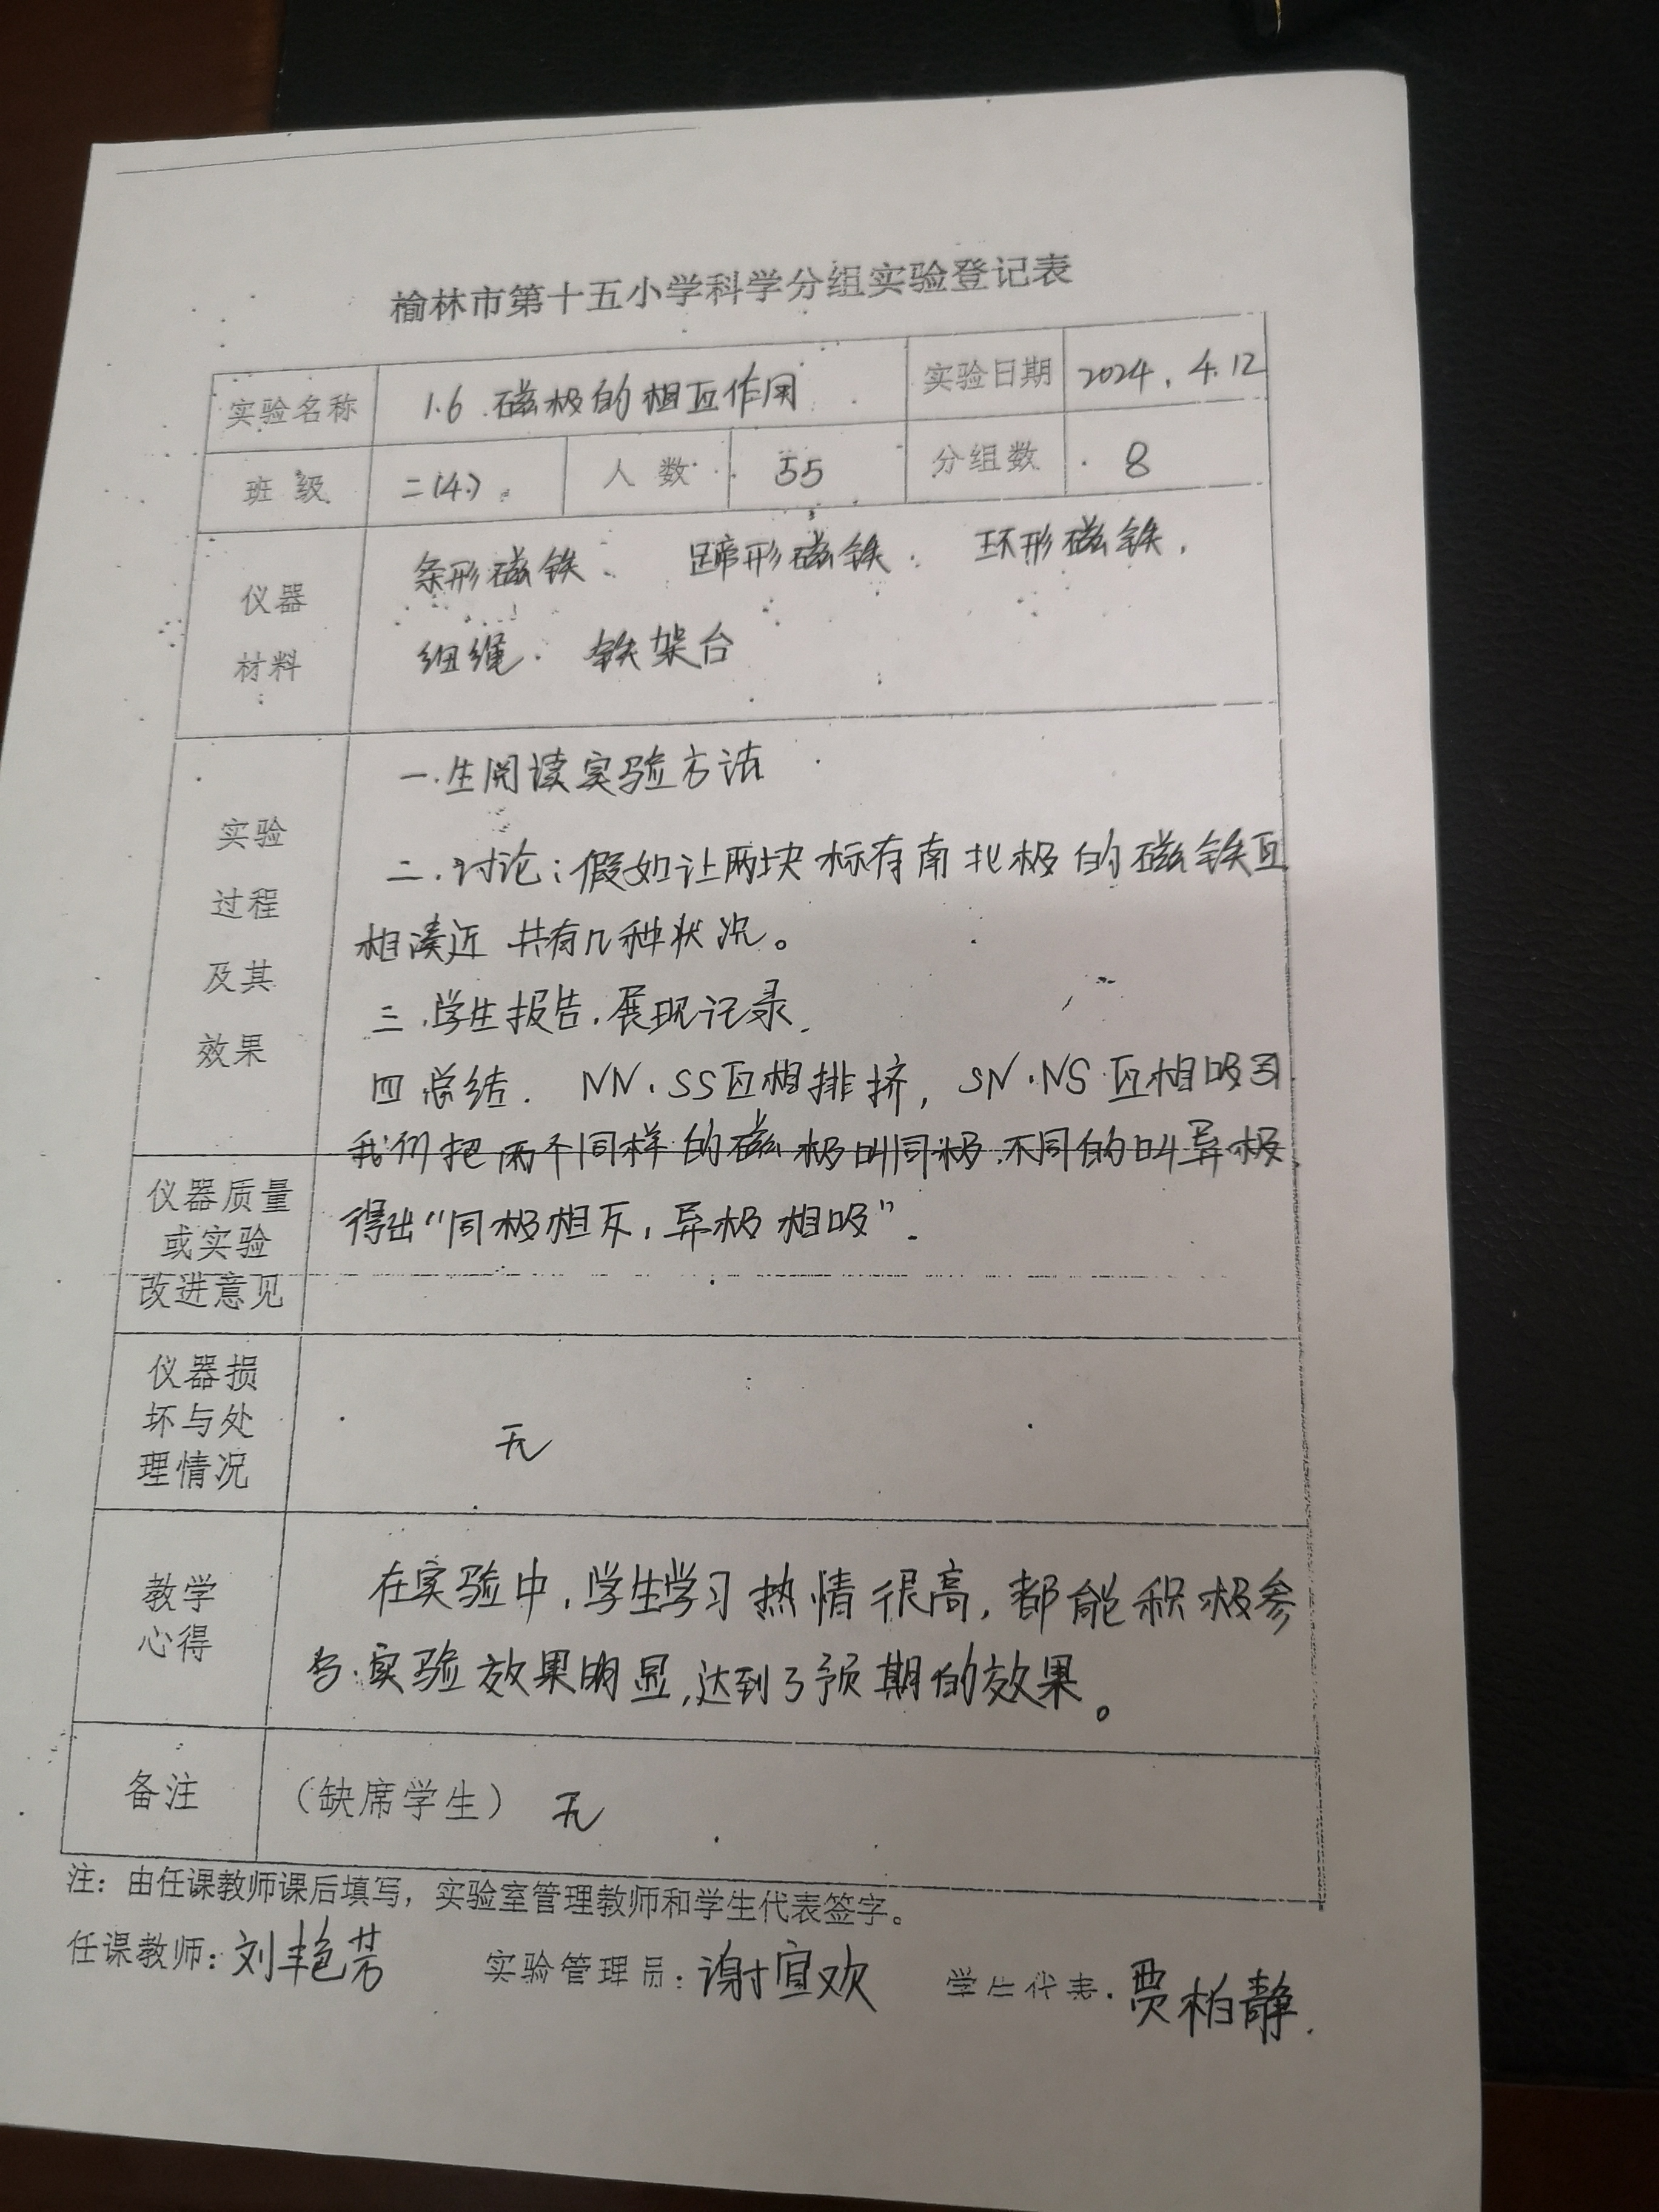 榆林市第十五小学科学分组实验登记表
实验名称 1.6 磁极的相互作用 实验日期 2024.4.12
班级 二(4) 人数 55 分组数 8
仪器 条形磁铁、 蹄形磁铁. 环形磁铁.
材料 细绳. 铁架台
一.生阅读实验方法
实验
二.讨论:假如让两块标有南北极的磁铁互
过程
相凑近 共有几种状况。
及其
三.学生报告.展现记录.
效果
四 总结. NN.SS互相排挤, SN.NS互相吸引
我们把两个同样的磁极叫同极.不同的叫异极.
仪器质量
或实验 得出“同极相斥,异极相吸”.
改进意见
仪器损
坏与处
理情况 无
教学 在实验中,学生学习热情很高,都能积极参
心得 与.实验效果明显,达到了预期的效果。
备注 (缺席学生) 无
注:由任课教师课后填写,实验室管理教师和学生代表签字。
任课教师:刘艳芳 实验管理员:谢宜欢 学生代表.贾柏静.